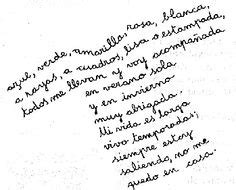 azul, verde, amarilla, rosa, blanca,
a rayas, a cuadros, lisa o estampada,
todos me llevan y voy acompañada
en verano sola
y en invierno
muy abrigada.
Mi vida es larga
vivo temporadas;
siempre estoy
saliendo, no me
quedo en casa.